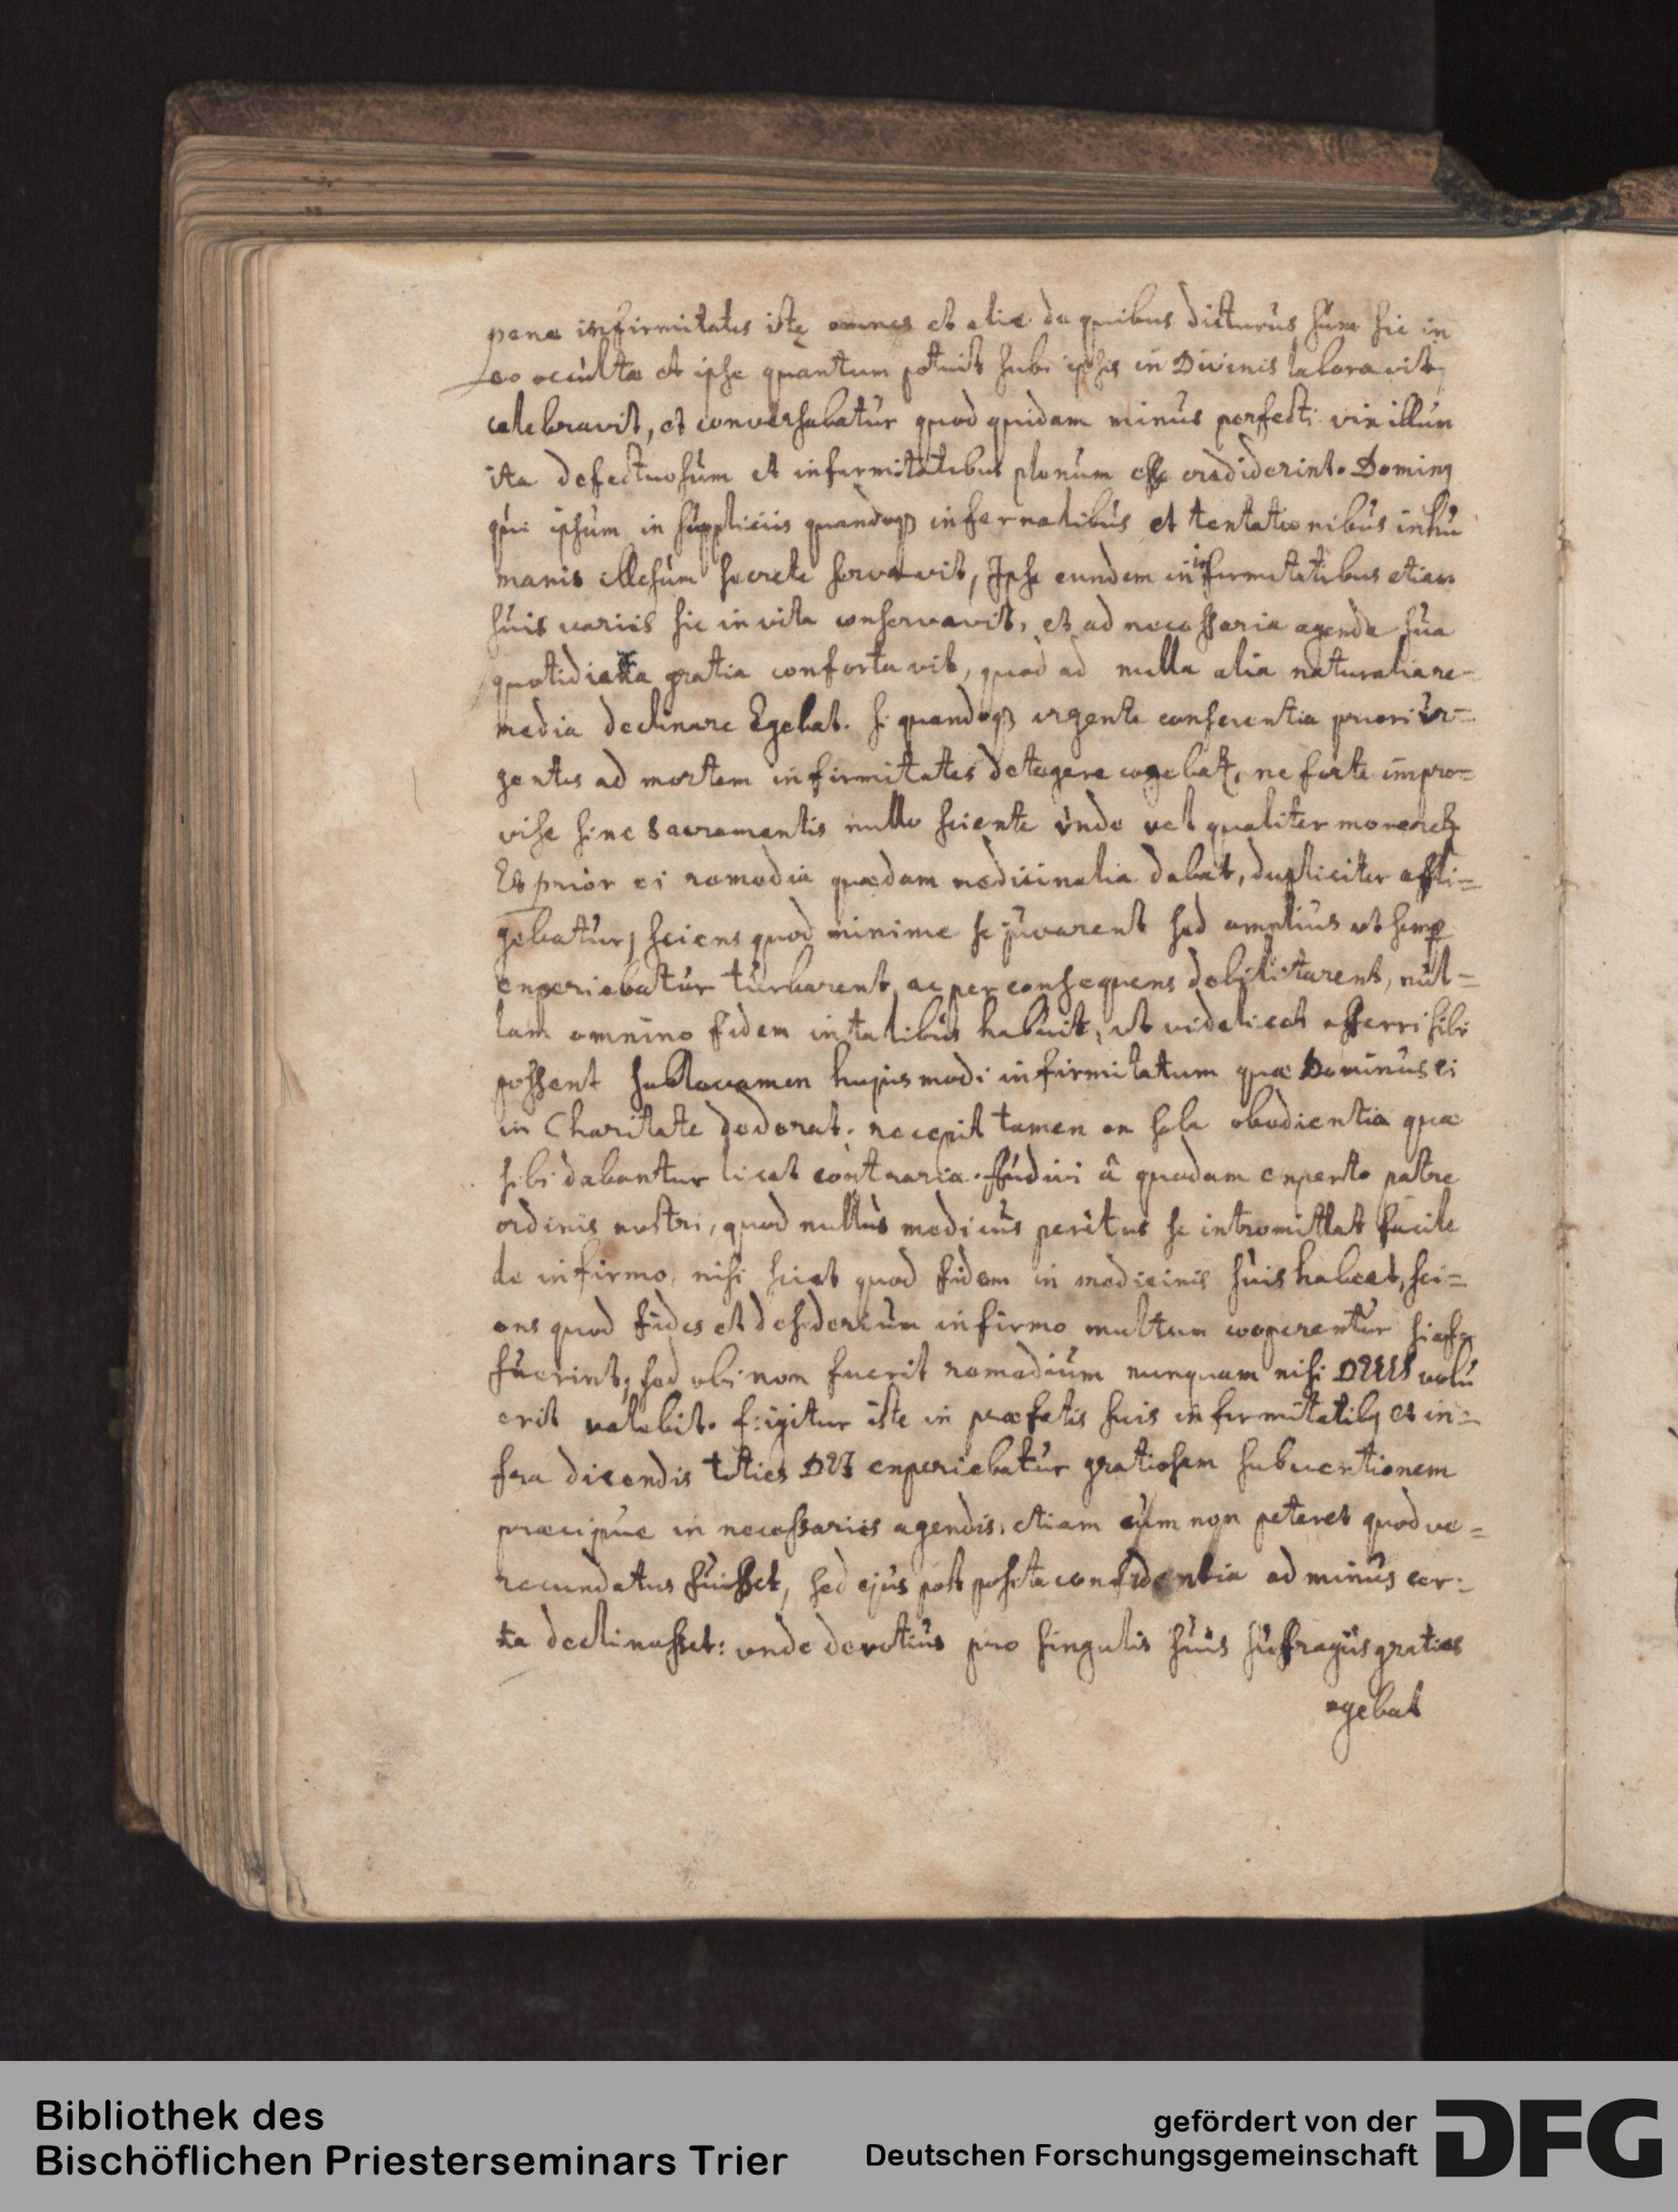 pene infirmitates istę omnes et aliæ de quibus dicturus sum sic in
eo occultæ et ipse quantum potuit sub ipsis in Divinis laboravit,
celebravit, et conversabatur quod quidam minus perfecti vix illum
ita defectuosum et infirmitatibus plenum esse crediderint. Dominꝰ
qui ipsum in suppliciis quandoqꝫ infernalibus et tentationibus inhu
manis illesum secrete servavit, Ipse eundem in infirmitatibus etiam
suis variis sic in vita conservavit, et ad necessaria agenda sua
quotidiana gratia confortavit, quod ad nulla alia naturalia re-
media declinare Egebat. si quandoqꝫ urgente conscientia priori ur=
gentes ad mortem infirmitates detegere cogebat, ne forte impro=
vise sine Sacramentis nullo sciente unde vel qualiter moreretꝛ
Et prior ei remedia quædam medicinalia dabat, dupliciter affli=
gebatur, sciens quod minime se juvarent sed amplius ut semꝑ
experiebatur turbarent, ac per consequens debilitarent, nul=
lam omnino fidem in talibus habuit, ut videlicet afferri sibi
possent sublevamen hujusmodi infirmitatum quæ Dominus ei
in Charitate dederat. recepit tamen ex sola obedientia quæ
sibi dabantur licet contraria. Audivi â quodam experto patre
ordinis nostri, quod nullus medicus peritus se intromittat facile
de infirmo, nisi sciat quod fidem in medicinis suis habeat, sci=
ens quod fides et desiderium infirmo multum cooperentur si
fuerint, sed ubi non fuerit remedium nunquam nisi DEUS volu
erit valebit. f. igitur iste in præfatis suis infirmitatibꝰ et in=
fra dicendis toties DEI experiebatur gratiosam subventionem
præcipue in necessariis agendis, etiam cum non peteret quod ve=
recundatus fuisset, sed ejus post posita confidentia ad minus cer=
ta declinasset: unde devotius pro singulis suis suffragiis gratias
agebat
Bibliothek des
Bischöflichen Priesterseminars Trier
gefördert von der
Deutschen Forschungsgemeinschaft
DFG